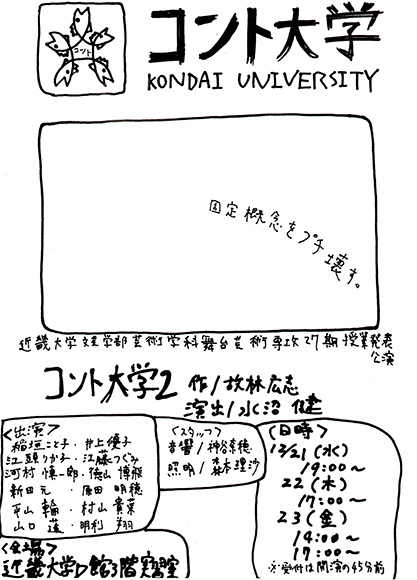 コント
コント大学
KONDAI UNIVERSITY
固定概念をプチ壊す。
近畿大学文芸学部芸術学科舞台芸術専攻27期授業発表
公演
コント大学2 作/故林広志
演出/水沼 健
<出演>
稲垣こと子・井上優子
江頭りか子・江藤つぐみ
河村慎一郎・徳山博飛
新田元・原田明穂
平山輪・村山貴菜
山口蓮・明利翔
<スタッフ>
音響/神谷奈穂
照明/森本理沙
<日時>
12/21(水)
19:00〜
22(木)
17:00〜
23(金)
14:00〜
17:00〜
※受付は開演の45分前
<会場>
近畿大学D館3階実習室